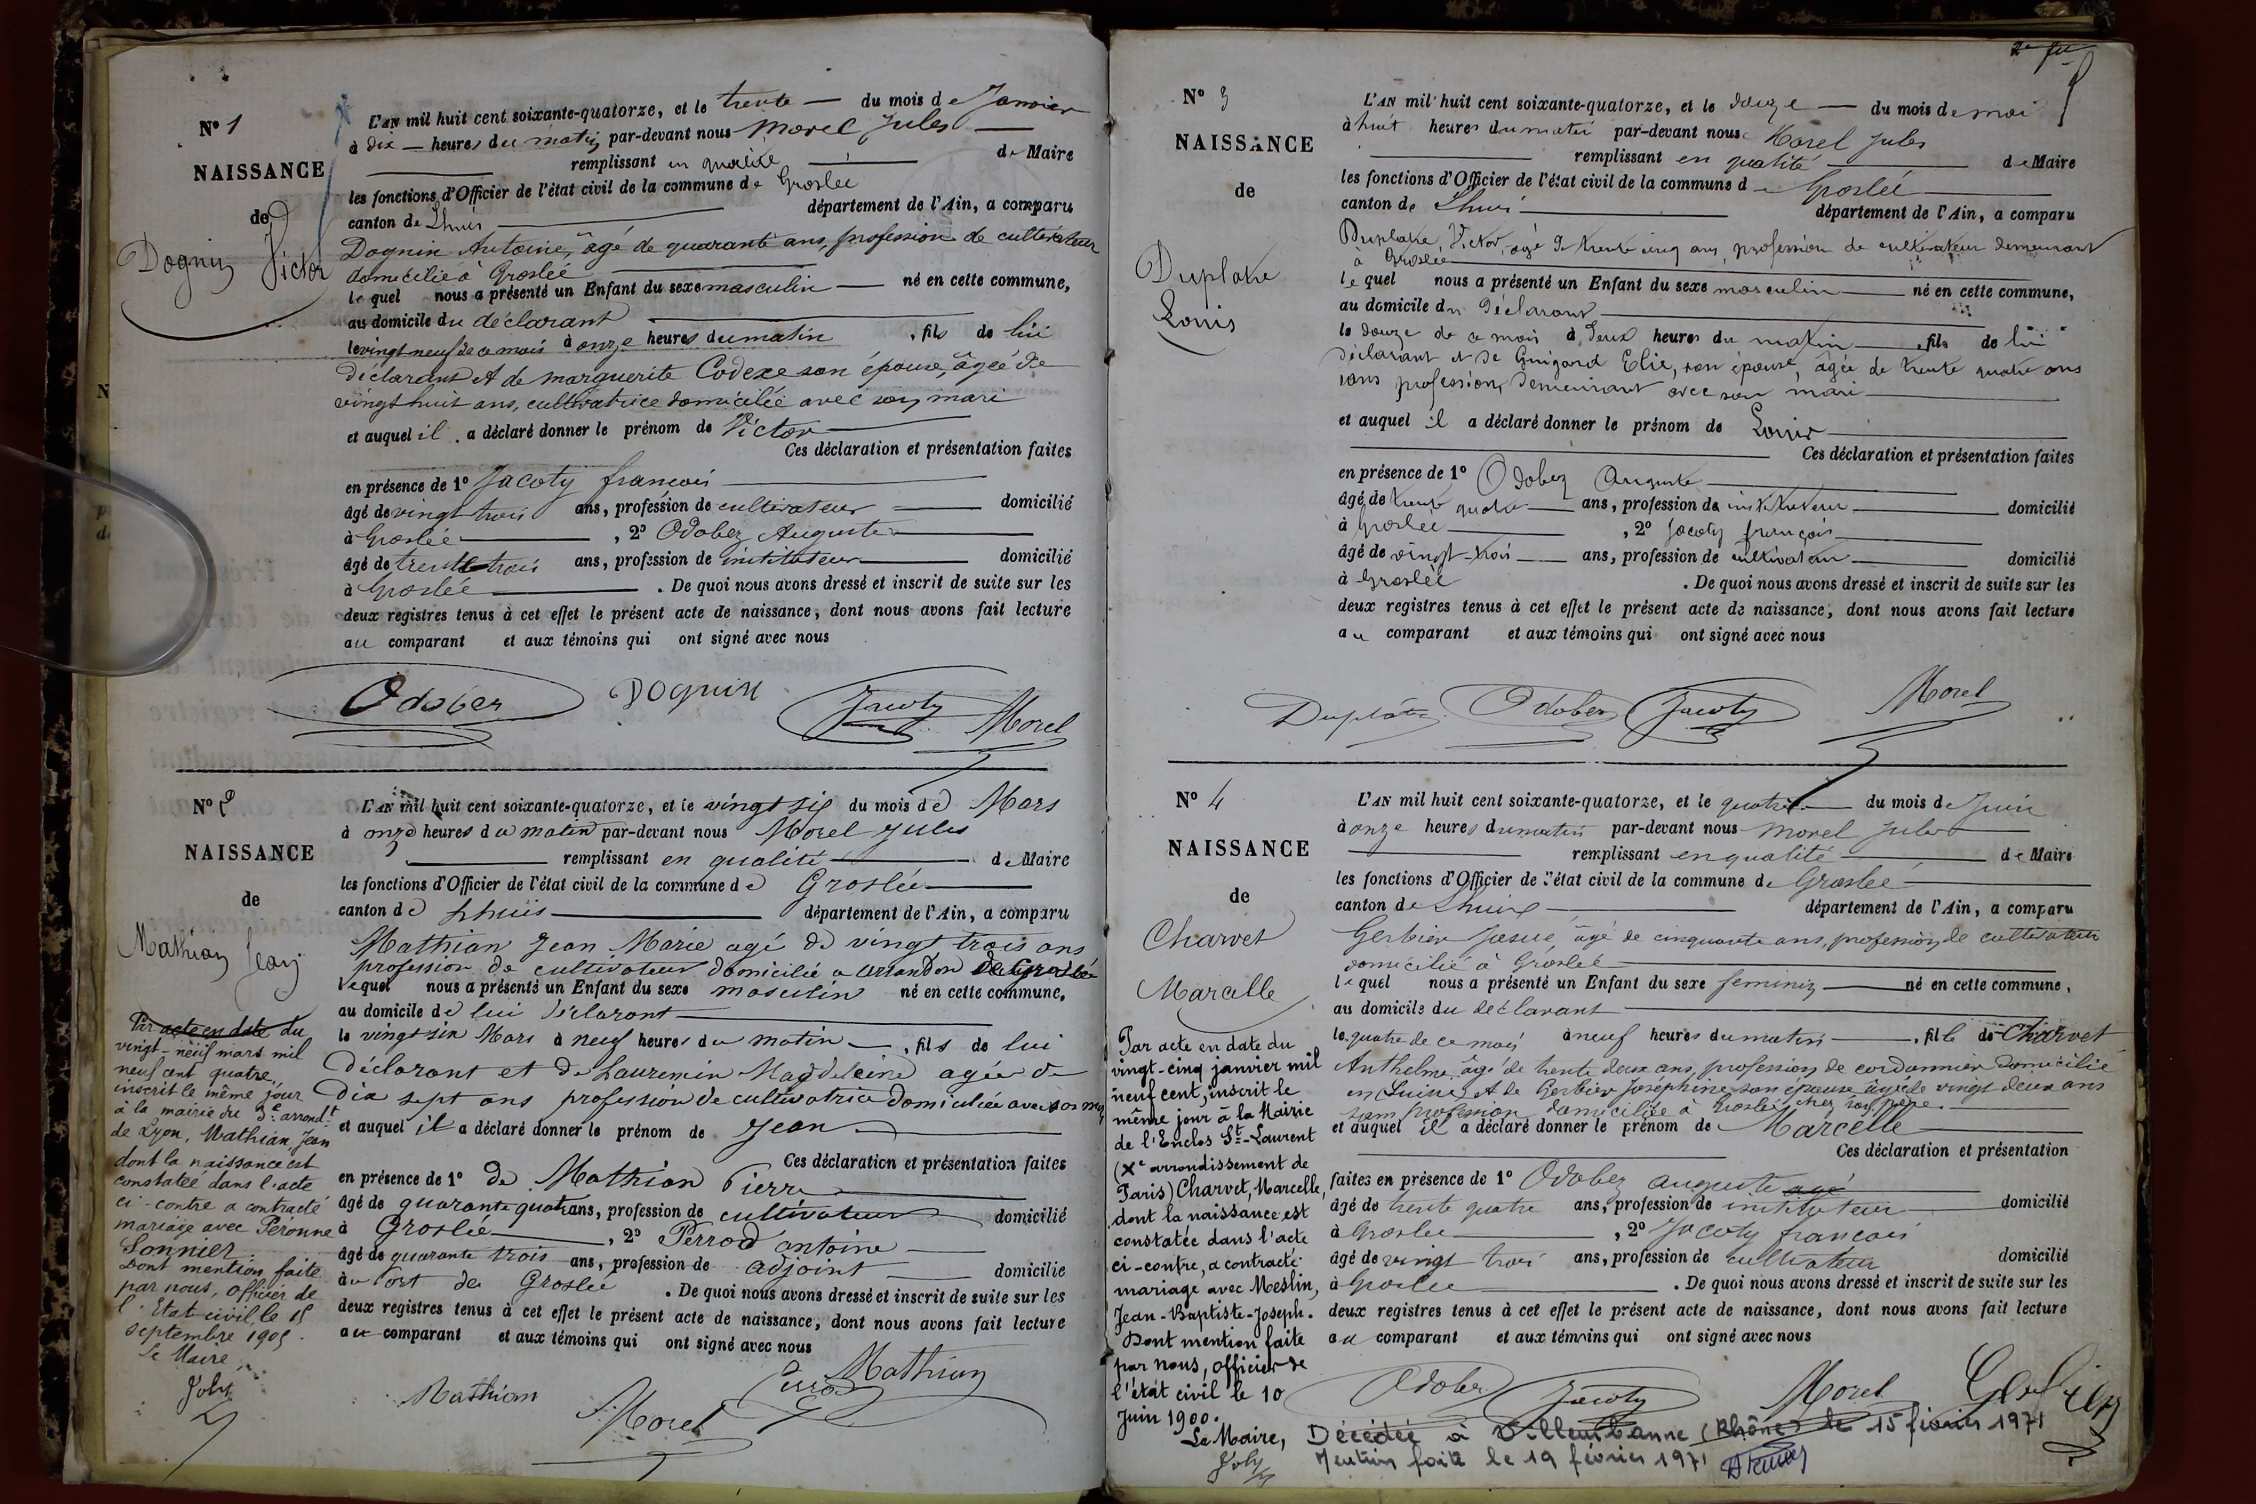 Nº 1
NAISSANCE
de
Dognin Victor
L'AN mil huit cent soixante-quatorze, et le trente du mois de Janvier
à dix heures du matin par-devant nous Morel Jules
remplissant en qualité de Maire
les fonctions d'Officier de l'état civil de la commune de Groslée
canton de Lhuis département de l'Ain, a comparu
Dognin Antoine, âgé de quarante ans, profession de cultivateur
domicilié à Groslée
lequel nous a présenté un Enfant du sexe masculin né en cette commune,
au domicile du déclarant
le vingt neuf de ce mois à onze heures du matin, fils de lui
déclarant et de marguerite Codexe son épouse, âgée de
vingt huit ans, cultivatrice domicilée avec son mari
et auquel il a déclaré donner le prénom de Victor
Ces déclaration et présentation faites
en présence de 1º Jacoty francois
âgé de vingt trois ans, profession de cultivateur domicilié
à Groslée, 2º Odobez Auguste
âgé de trente trois ans, profession de instituteur domicilié
à Groslée. De quoi nous avons dressé et inscrit de suite sur les
deux registres tenus à cet effet le présent acte de naissance, dont nous avons fait lecture
au comparant et aux témoins qui ont signé avec nous
Odobez Dognin Jacoty Morel
Nº 2
NAISSANCE
de
Mathian Jean
L'AN mil huit cent soixante-quatorze, et le vingt six du mois de Mars
à onze heures du matin par-devant nous Morel Jules
remplissant en qualité de Maire
les fonctions d'Officier de l'état civil de la commune de Groslée
canton de Lhuis département de l'Ain, a comparu
Mathian Jean Marie agé de vingt trois ans
profession de cultivateur domicilié a de Groslée
lequel nous a présenté un Enfant du sexe masculin né en cette commune,
au domicile de lui déclarant
le vingt six Mars à neuf heures du matin, fils de lui
déclarant et de Lauremin Magdeleine agée de
dix sept ans profession de cultivatrice domiciliée avec son
et auquel il a déclaré donner le prénom de Jean
Ces déclaration et présentation faites
en présence de 1º de Mathian Pierre
âgé de quarante quatre ans, profession de cultivateur domicilié
à Groslée, 2º Perrod antoine
âgé de quarante trois ans, profession de adjoint domicilié
à Port de Groslée. De quoi nous avons dressé et inscrit de suite sur les
deux registres tenus à cet effet le présent acte de naissance, dont nous avons fait lecture
au comparant et aux témoins qui ont signé avec nous
Mathian Morel Mathian
Par acte en date du
vingt-neuf mars mil
neuf cent quatre,
inscrit le même jour
à la mairie du 3e arrondt
de Lyon, Mathian Jean
dont la naissance est
constatée dans l'acte
ci-contre a contracté
mariage avec Péronne
Sonnier.
Dont mention faite
par nous, officier de
l'Etat-civil, le 15
septembre 1905.
Le Maire,
Joly
Nº 3
NAISSANCE
de
Duplatre
Louis
L'AN mil huit cent soixante-quatorze, et le douze du mois de mai
à huit heures du matin par-devant nous Morel Jules
remplissant en qualité de Maire
les fonctions d'Officier de l'état civil de la commune de Groslée
canton de Lhuis département de l'Ain, a comparu
Duplatre, Victor, agé de trente cinq ans, profession de cultivateur demeurant
à Groslée
lequel nous a présenté un Enfant du sexe masculin né en cette commune,
au domicile du déclarant
le douze de ce mois à deux heures du matin, fils de lui
déclarant et de Guigard Elie, son épouse, âgée de trente quatre ans
sans profession, demeurant avec son mari
et auquel il a déclaré donner le prénom de Louis
Ces déclaration et présentation faites
en présence de 1º Odobez Auguste
âgé de trente quatre ans, profession de instituteur domicilié
à Groslée, 2º Jacoty françois
âgé de vingt-trois ans, profession de cultivateur domicilié
à Groslée. De quoi nous avons dressé et inscrit de suite sur les
deux registres tenus à cet effet le présent acte de naissance, dont nous avons fait lecture
au comparant et aux témoins qui ont signé avec nous
Duplatre Odobez Jacoty Morel
Nº 4
NAISSANCE
de
Charvet
Marcelle
L'AN mil huit cent soixante-quatorze, et le quatre du mois de Juin
à onze heures du matin par-devant nous Morel Jules
remplissant en qualité de Maire
les fonctions d'Officier de l'état civil de la commune de Groslée
canton de Lhuis département de l'Ain, a comparu
Gerbier Josué, âgé de cinquante ans, profession de cultivateur
domicilié à Groslée
lequel nous a présenté un Enfant du sexe feminin né en cette commune,
au domicile du déclarant
le quatre de ce mois à neuf heures du matin, fille de Charvet
Anthelme âgé de trente deux ans, profession de cordonnier domicilié
en Suisse, et de Gerbier Joséphine son épouse âgée de vingt deux ans
sans profession domiciliée à Groslée chez son père
et auquel il a déclaré donner le prénom de Marcelle
Ces déclaration et présentation
faites en présence de 1º Odobez auguste agé
âgé de trente quatre ans, profession de instituteur domicilié
à Groslée, 2º Jacoty francois
âgé de vingt trois ans, profession de cultivateur domicilié
à Groslée. De quoi nous avons dressé et inscrit de suite sur les
deux registres tenus à cet effet le présent acte de naissance, dont nous avons fait lecture
au comparant et aux témoins qui ont signé avec nous
Odobez Jacoty Morel Gerbier
Par acte en date du
vingt-cinq janvier mil
neuf cent, inscrit le
même jour à la Mairie
de l'Enclos St-Laurent
(Xe arrondissement de
Paris) Charvet, Marcelle,
dont la naissance est
constatée dans l'acte
ci-contre, a contracté
mariage avec Meslin,
Jean-Baptiste-Joseph.
Dont mention faite
par nous, officier de
l'état civil le 10
Juin 1900.
Le Maire,
Joly
Décédée à Villeurbanne (Rhône) le 15 février 1971
Mention faite le 19 février 1971